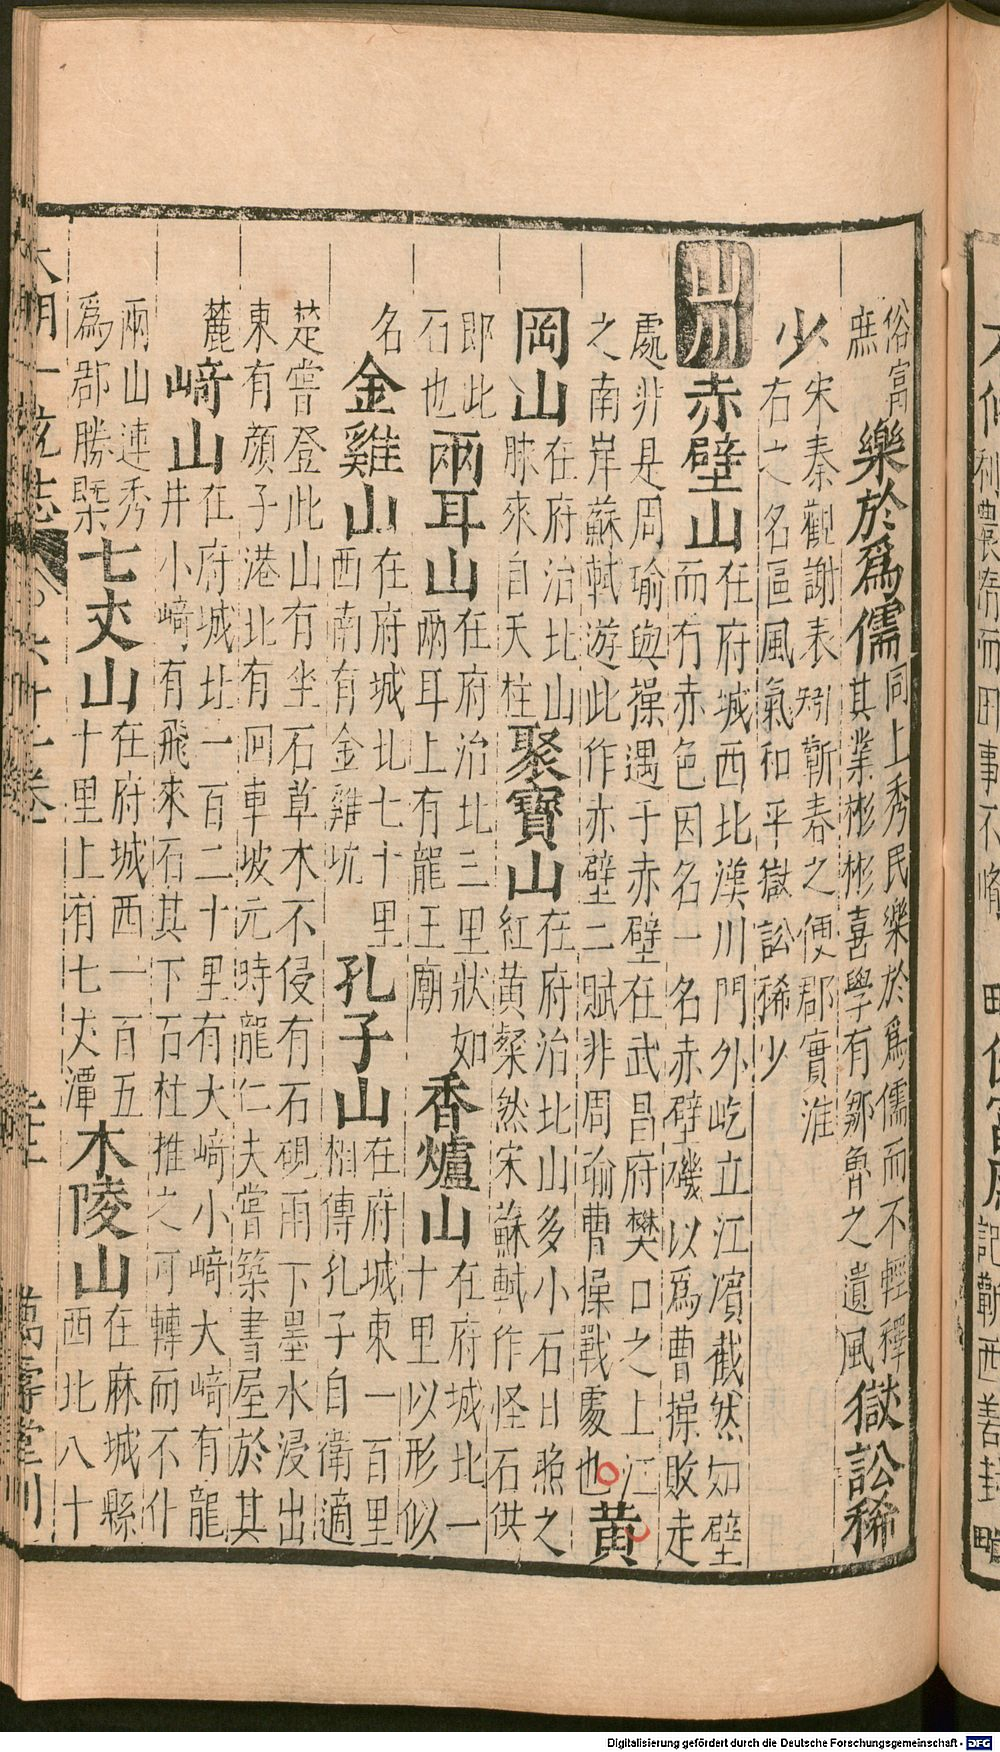 俗富
庶
樂於爲儒
同上秀民樂於爲儒而不輕釋
其業彬彬喜學有鄒魯之遺風
獄訟稀
少
宋秦觀謝表矧蘄春之便郡實淮
右之名區風氣和平獄訟稀少
山川
赤壁山
在府城西北漢川門外屹立江濱截然如壁
而有赤色因名一名赤壁磯以爲曹操敗走
處非是周瑜與操遇于赤壁在武昌府樊口之上江
之南岸蘇軾游此作赤壁二賦非周瑜曹操戰處也
黃
岡山
在府治北山
脉來自天柱
聚寶山
在府治北山多小石日照之
紅黃粲然宋蘇軾作怪石供
即此
石也
兩耳山
在府治北三里狀如
兩耳上有龍王廟
香爐山
在府城北一
十里以形似
名
金雞山
在府城北七十里
西南有金雞坑
孔子山
在府城東一百里
相傳孔子自衛適
楚嘗登此山有坐石草木不侵有石硯雨下墨水浸出
東有顏子港北有回車坡元時龍仁夫嘗築書屋於其
麓
崎山
在府城北一百二十里有大崎小崎大崎有龍
井小崎有飛來石其下石柱推之可轉而不仆
兩山連秀
爲郡勝槩
七丈山
在府城西一百五
十里上有七丈潭
木陵山
在麻城縣
西北八十
大明一統志
六十一卷
萬壽堂刊
Digitalisierung gefördert durch die Deutsche Forschungsgemeinschaft - DFG